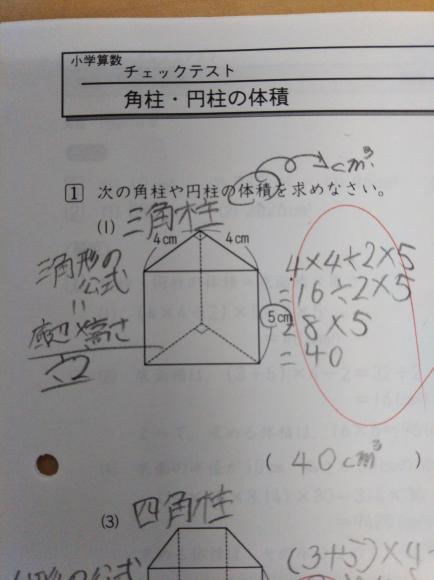 小学算数
チェックテスト
角柱・円柱の体積
cm³
1 次の角柱や円柱の体積を求めなさい。
(1) 三角柱
4cm 4cm
三角形の
公式
=
底辺×高さ
÷2
5cm
4×4÷2×5
=16÷2×5
=8×5
=40
( 40cm³ )
(3) 四角柱
形の公式
(3+5)×4÷